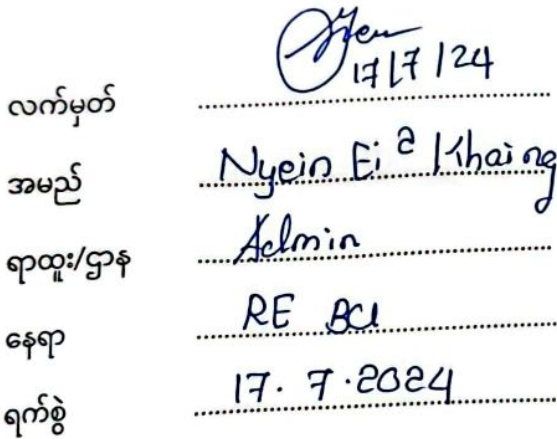 လက်မှတ် 17/7/24
အမည် Nyein Ei Khaing
ရာထူး/ဌာန Admin
နေရာ RE
ရက်စွဲ 17.7.2024